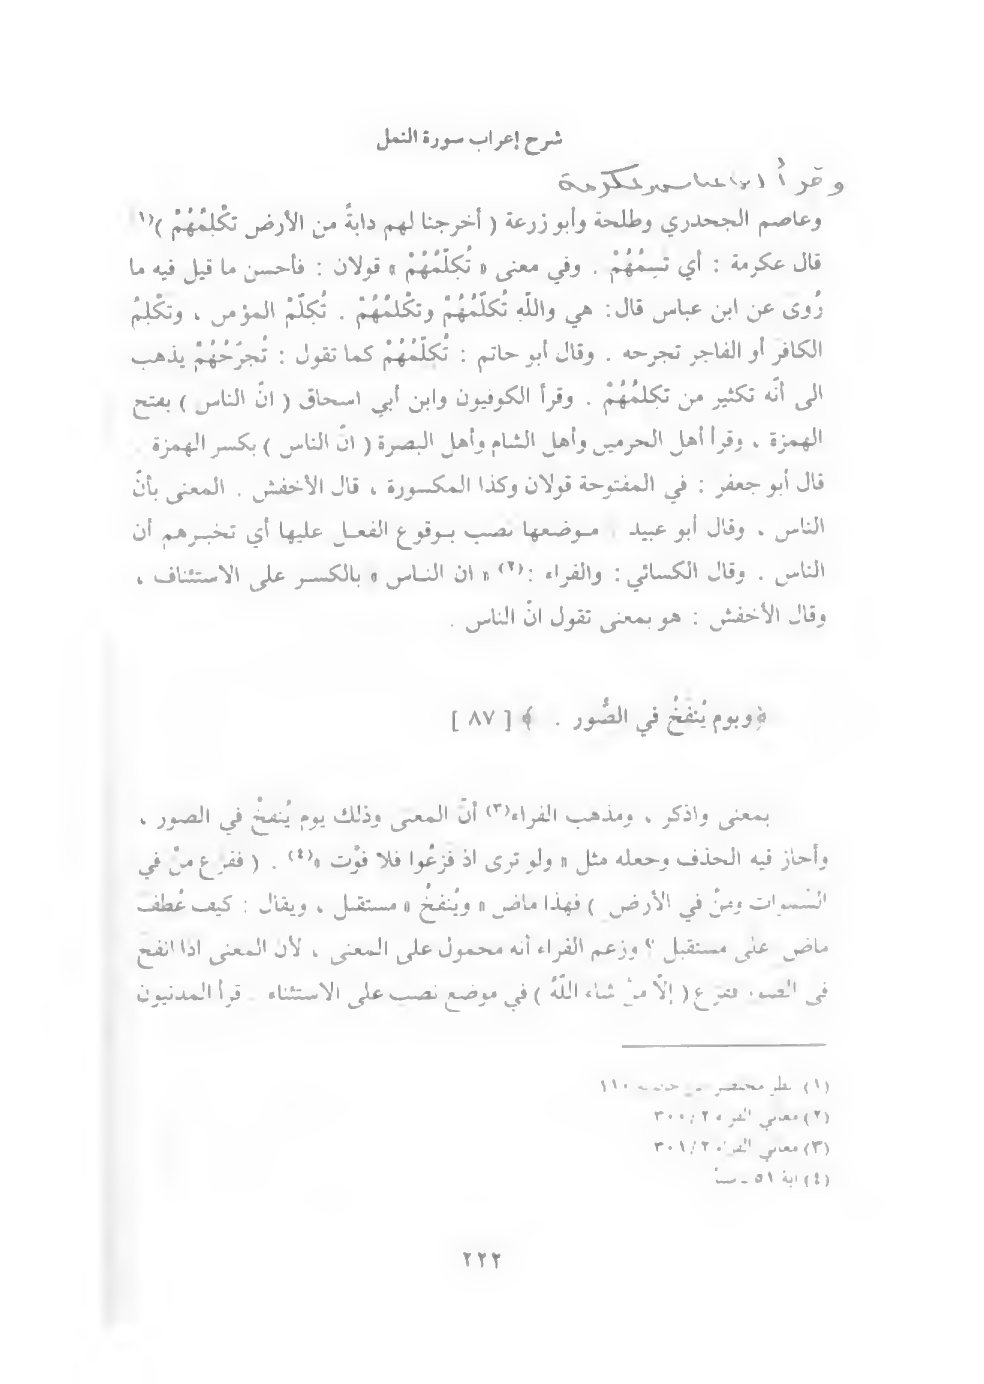 شرح إعراب سورة النمل
و قرأ ابن عباس وعكرمة
وعاصم الجحدري وطلحة وأبو زرعة ( أخرجنا لهم دابةً من الأرض تَكْلِمُهُمْ )(١)
قال عكرمة : أي تَسِمُهُمْ . وفي معنى « تُكَلّمُهُمْ » قولان : فأحسن ما قيل فيه ما
رُوى عن ابن عباس قال: هي واللّهِ تُكلّمُهُمْ وتكْلمُهُمْ . تُكلّمْ المؤمن ، وتكْلِمُ
الكافر أو الفاجر تجرحه . وقال أبو حاتم : تُكلّمُهُمْ كما تقول : تُجرّحُهُمْ يذهب
الى أنّه تكثير من تكلمُهُمْ . وقرأ الكوفيون وابن أبي اسحاق ( انّ الناس ) بفتح
الهمزة ، وقرأ أهل الحرمين وأهل الشام وأهل البصرة ( انّ الناس ) بكسر الهمزة
قال أبو جعفر : في المفتوحة قولان وكذا المكسورة ، قال الأخفش . المعنى بأنّ
الناس ، وقال أبو عبيد موضعها نصب بوقوع الفعل عليها أي تخبرهم أن
الناس . وقال الكسائي : والفراء :(٢) « ان الناس » بالكسر على الاستئناف ،
وقال الأخفش : هو بمعنى تقول انّ الناس .
﴿ويوم يُنفخُ في الصُّور . ﴾ [ ٨٧ ]
بمعنى واذكر ، ومذهب الفراء(٣) أنّ المعنى وذلك يوم يُنفخُ في الصور ،
وأجاز فيه الحذف وجعله مثل « ولو ترى اذ فزعُوا فلا فوْت »(٤) . ( ففزع منْ في
السموات ومنْ في الأرض ) فهذا ماض « ويُنفخُ » مستقبل ، ويقال : كيف عُطف
ماض على مستقبل ؟ وزعم الفراء أنه محمول على المعنى ، لأن المعنى اذا نفخ
في الصور ففزع ( إلاّ منْ شاء اللّهُ ) في موضع نصب على الاستثناء قرأ المدنيون
(١) انظر مختصر ابن خالويه ١١٠
(٢) معاني الفراء ٣٠٠/٢
(٣) معاني الفراء ٣٠١/٢
(٤) اية ٥١ - سبأ
٢٢٢